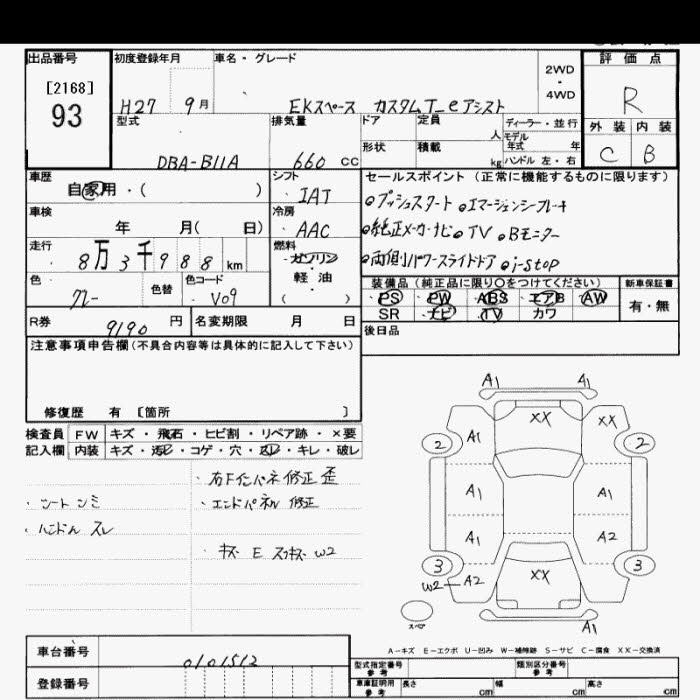 出品番号 初度登録年月 車名・グレード 評価点
[2168]
93
H27 9月 EKスペース カスタムT_eアシスト
2WD
・
4WD
R
型式 排気量 ドア 定員 人 ディーラー・並行
外装 内装
モデル年式 年
DBA-B11A 660 CC 形状 積載 kg ハンドル 左・右
C B
車歴 シフト セールスポイント (正常に機能するものに限ります)
自家用・( ) IAT
プッシュスタート エマージェンシーブレーキ
車検 冷房
年 月( 日) AAC
純正メーカーナビ TV Bモニター
走行 燃料
8万3千988km ガソリン・軽油
( )
両側パワースライドドア i-stop
色 色替 色コード
グレー V09
装備品 (純正品に限り○をつけてください) 新車保証書
PS PW ABS エアB AW
SR ナビ TV カワ
有・無
R券 9190 円 名変期限 月 日
後日品
注意事項申告欄(不具合内容等は具体的に記入して下さい)
修復歴 有 [箇所 ]
検査員 FW キズ・飛石・ヒビ割・リペア跡・×要
記入欄 内装 キズ・汚レ・コゲ・穴・スレ・キレ・破レ
・右Fインパネ修正 歪
・シート シミ
・エンドパネル 修正
・ハンドル スレ
・キズ E
W2
A1 A1
XX XX
A1
2 2
A1 A1
A1 A2
3 3
W2 A2 XX
スペア
A1
A-キズ E-エクボ U-凹み W-補修跡 S-サビ C-腐食 XX-交換済
車台番号 0101512
型式指定番号 参考 類別区分番号 参考
登録番号
車庫証明用 参考 長さ cm 幅 cm 高さ cm